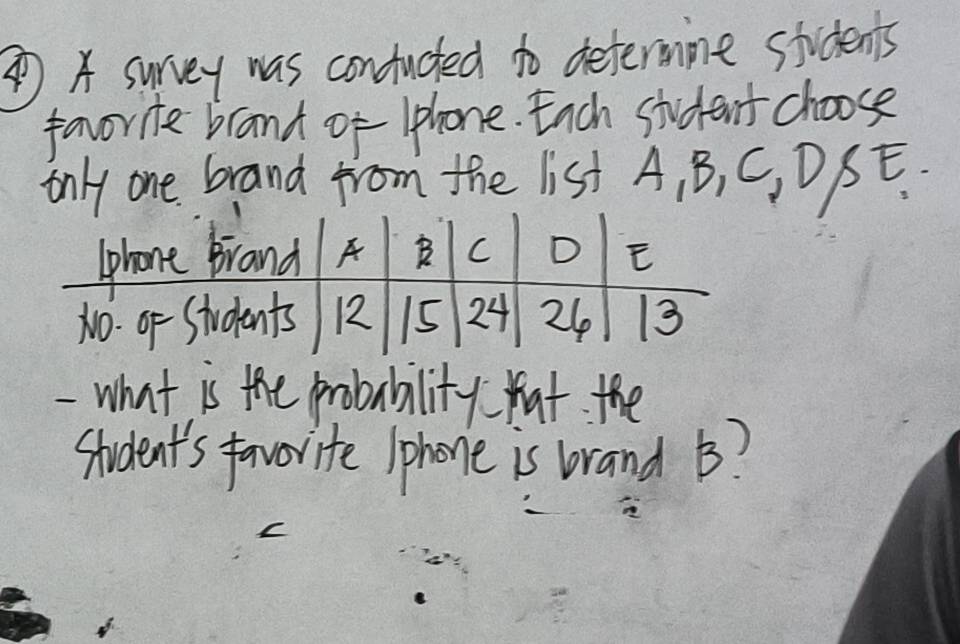 ④ A survey was conducted to determine students
favorite brand of Iphone. Each student choose
only one brand from the list A, B, C, D & E.
Iphone Brand | A | B | C | D | E
No. of Students | 12 | 15 | 24 | 26 | 13
- What is the probability that the
Student's favorite Iphone is brand B?